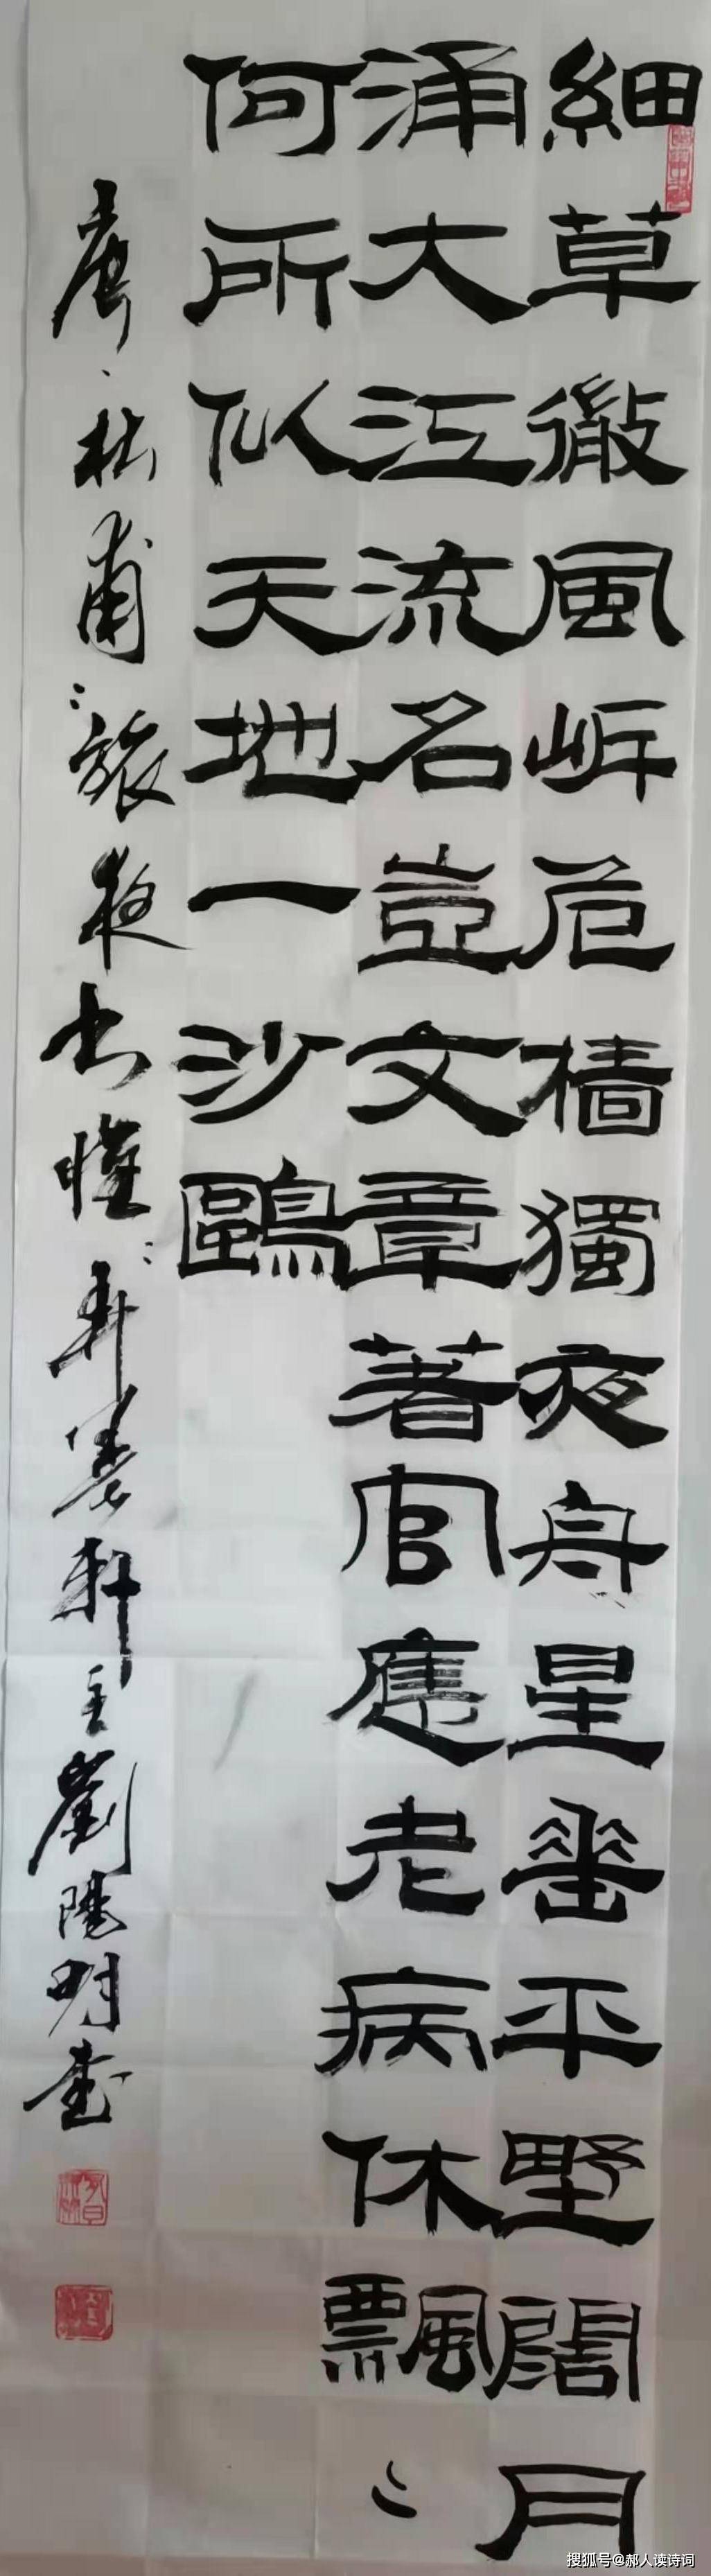 細草微風岸危檣獨夜舟星垂平野闊月
涌大江流名豈文章著官應老病休飄〻
何所似天地一沙鷗
唐、杜甫：旅夜书懷：軒主劉陽明書
搜狐号@郝人读诗词